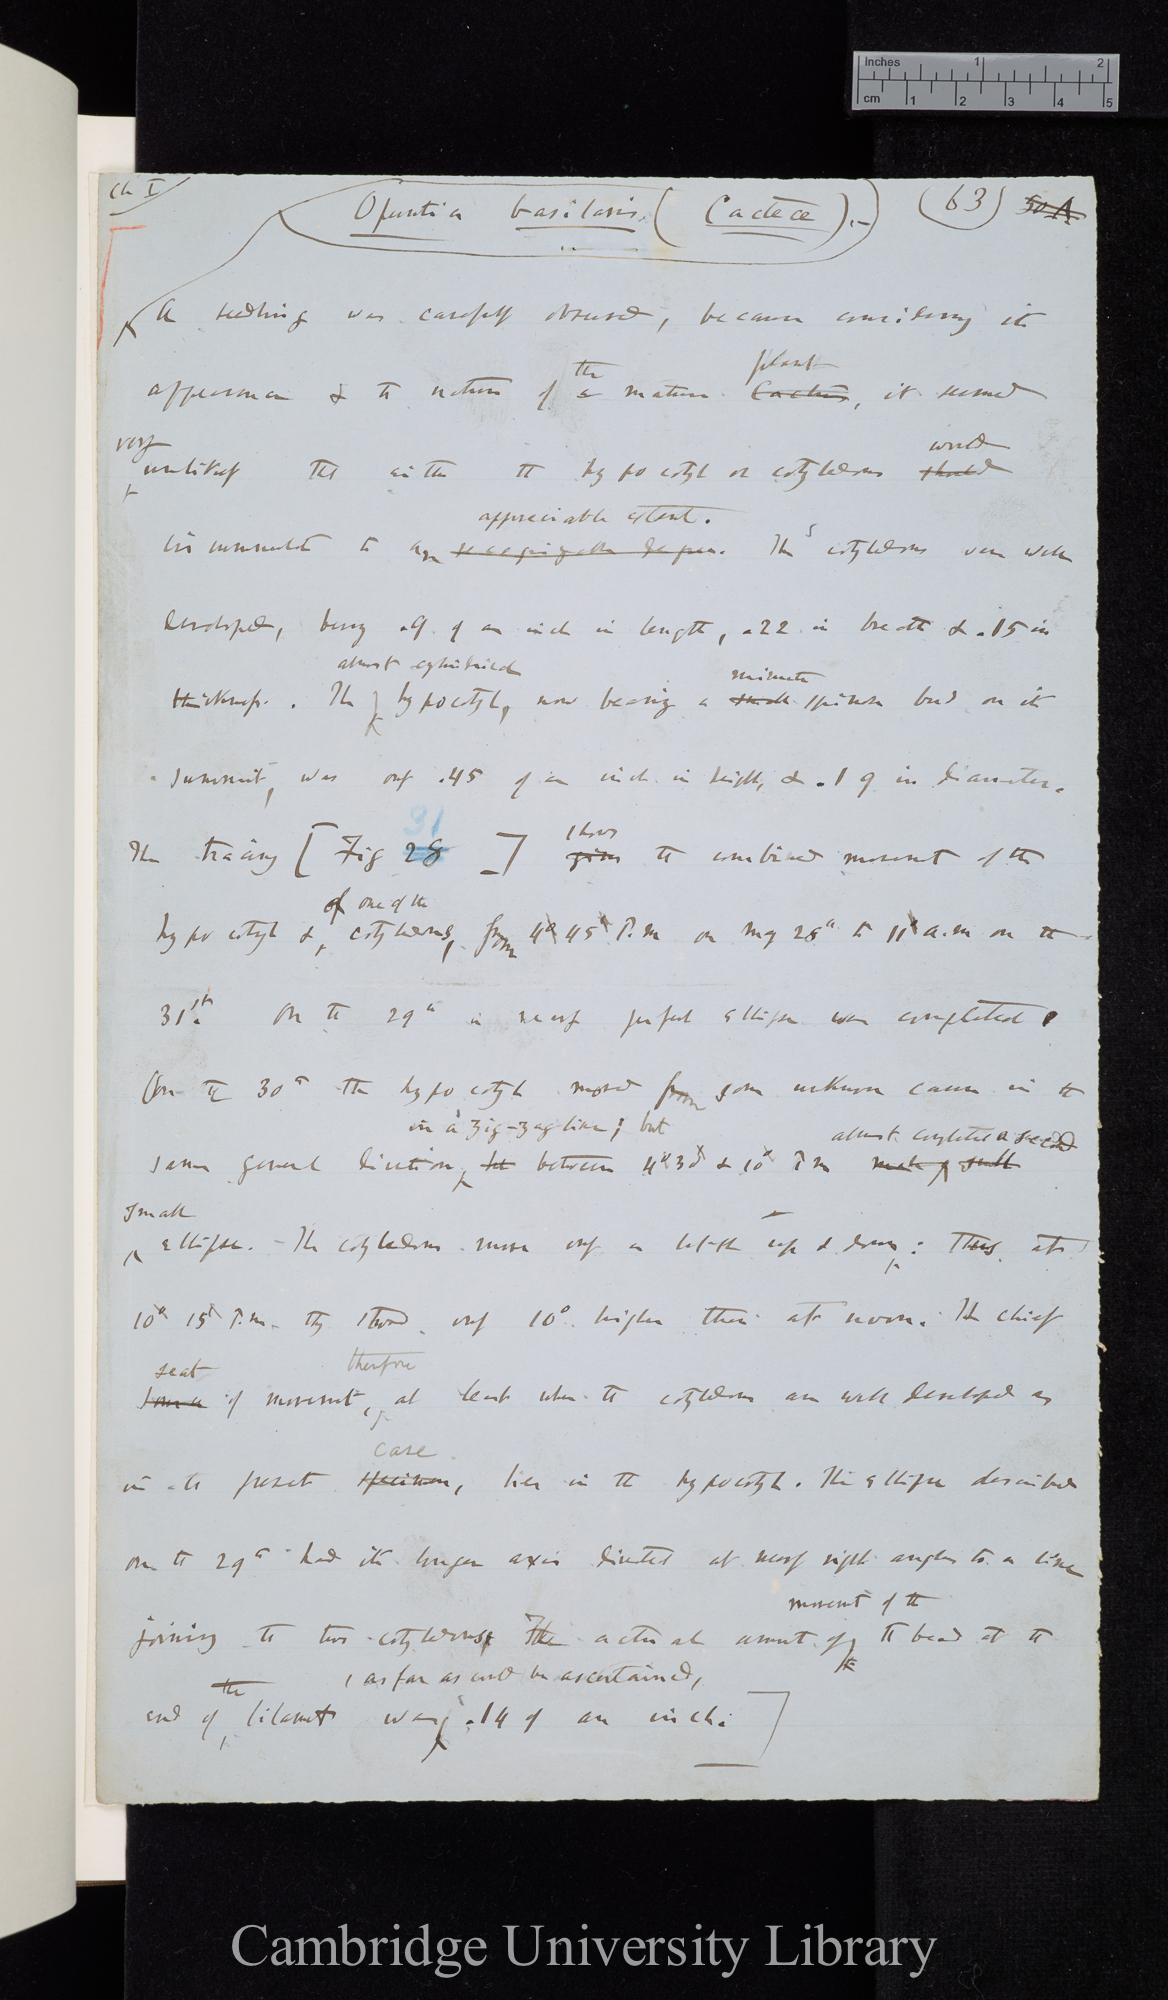 Inches 1 2
cm 1 2 3 4 5
Ch I
Opuntia basilaris. (Cacteæ).— (63) 50 A
A seedling was carefully observed, because considering its
the plant
appearance & the nature of a mature Cactus, it seemed
very would
unlikely that either the hypocotyl or cotyledons should
appreciable extent.
circumnutate to any degree. The cotyledons were well
developed, being .9 of an inch in length, .22 in breadth & .15 in
almost cylindrical minute
thickness. The hypocotyl, now bearing a small spinose bud on its
summit, was only .45 of an inch in height, & .19 in diameter.
31
shows
The tracing [Fig 28 ] gives the combined movement of the
of one of the
hypocotyl & cotyledons, from 4h 45' P.m on May 28th to 11h a.m on the
31st. On the 29th a nearly perfect ellipse was completed.
On the 30th the hypocotyl moved from some unknown cause in the
in a zig-zag line; but almost completed a second
same general direction, but between 4h 30' & 10h P.m made a small
small
ellipse. — The cotyledons move only a little up & down: thus at
10h 15' P.m. they stood only 10° higher than at noon. The chief
seat therefore
source of movement, at least when the cotyledons are well developed as
case
in the present specimen, lies in the hypocotyl. The ellipse described
on the 29th had its longer axis directed at nearly right angles to a line
movement of the
joining the two cotyledons. The actual amount of the bead at the
the , as far as could be ascertained,
end of filament was .14 of an inch.]
Cambridge University Library